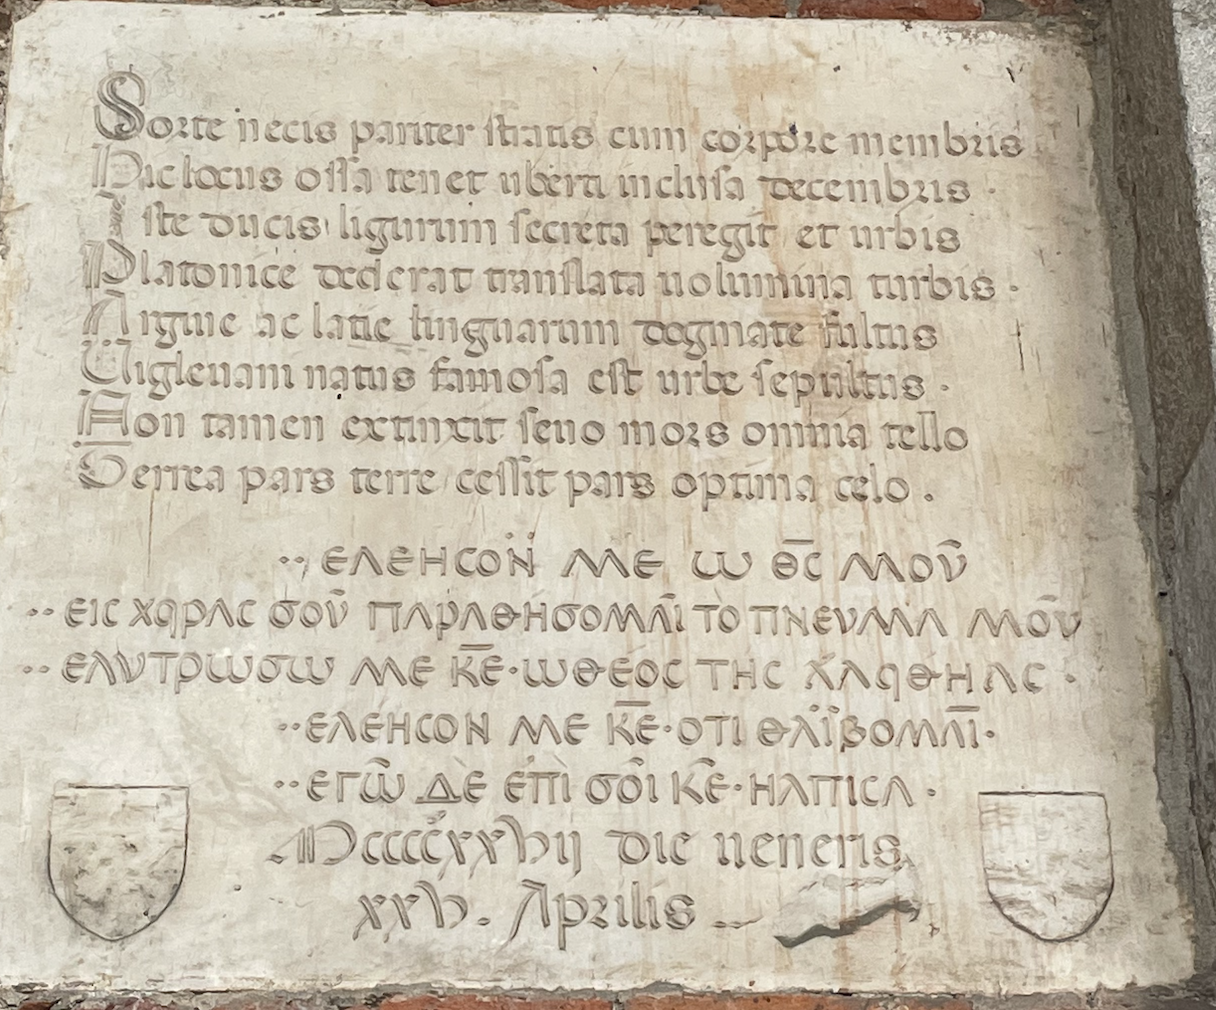 Sorte necis pariter stratis cum corpore membris
Hic locus ossa tenet uberti inclusa decembris ·
Iste ducis ligurum secreta peregit et urbis
Platonice dederat translata uolumina turbis ·
Argiue ac latie linguarum dogmate fultus
Uigleuani natus famosa est urbe sepultus ·
Non tamen extinxit seuo mors omnia tello
Terrea pars terre cessit pars optima celo .
·· ΕΛΕΗCΟΝ ΜΕ Ѡ Θ̅C̅ ΜΟΥ͂
·· ΕΙC ΧϤΡΑC σΟΥ͂ ΠΑΡΑΘΗσΟΜΑΙ ΤῸ ΠΝΕΥΜΑ ΜΟΥ͂
·· ΕΛΥΤΡѠσѠ ΜΕ Κ̅Ε̅ · Ѡ ΘΕΟC ΤΗC ΑΛϤΘΗΑC ·
·· ΕΛΕΗCΟΝ ΜΕ Κ̅Ε̅ · ΟΤΙ ΘΛΪΒΟΜΑΙ ·
·· ΕΓѠ͂ ΔΈ ἘΠῚ σΟΙ Κ̅Ε̅ · ΗΛΠΙCΑ ·
Mccccxxvij die ueneris
xxv . Aprilis